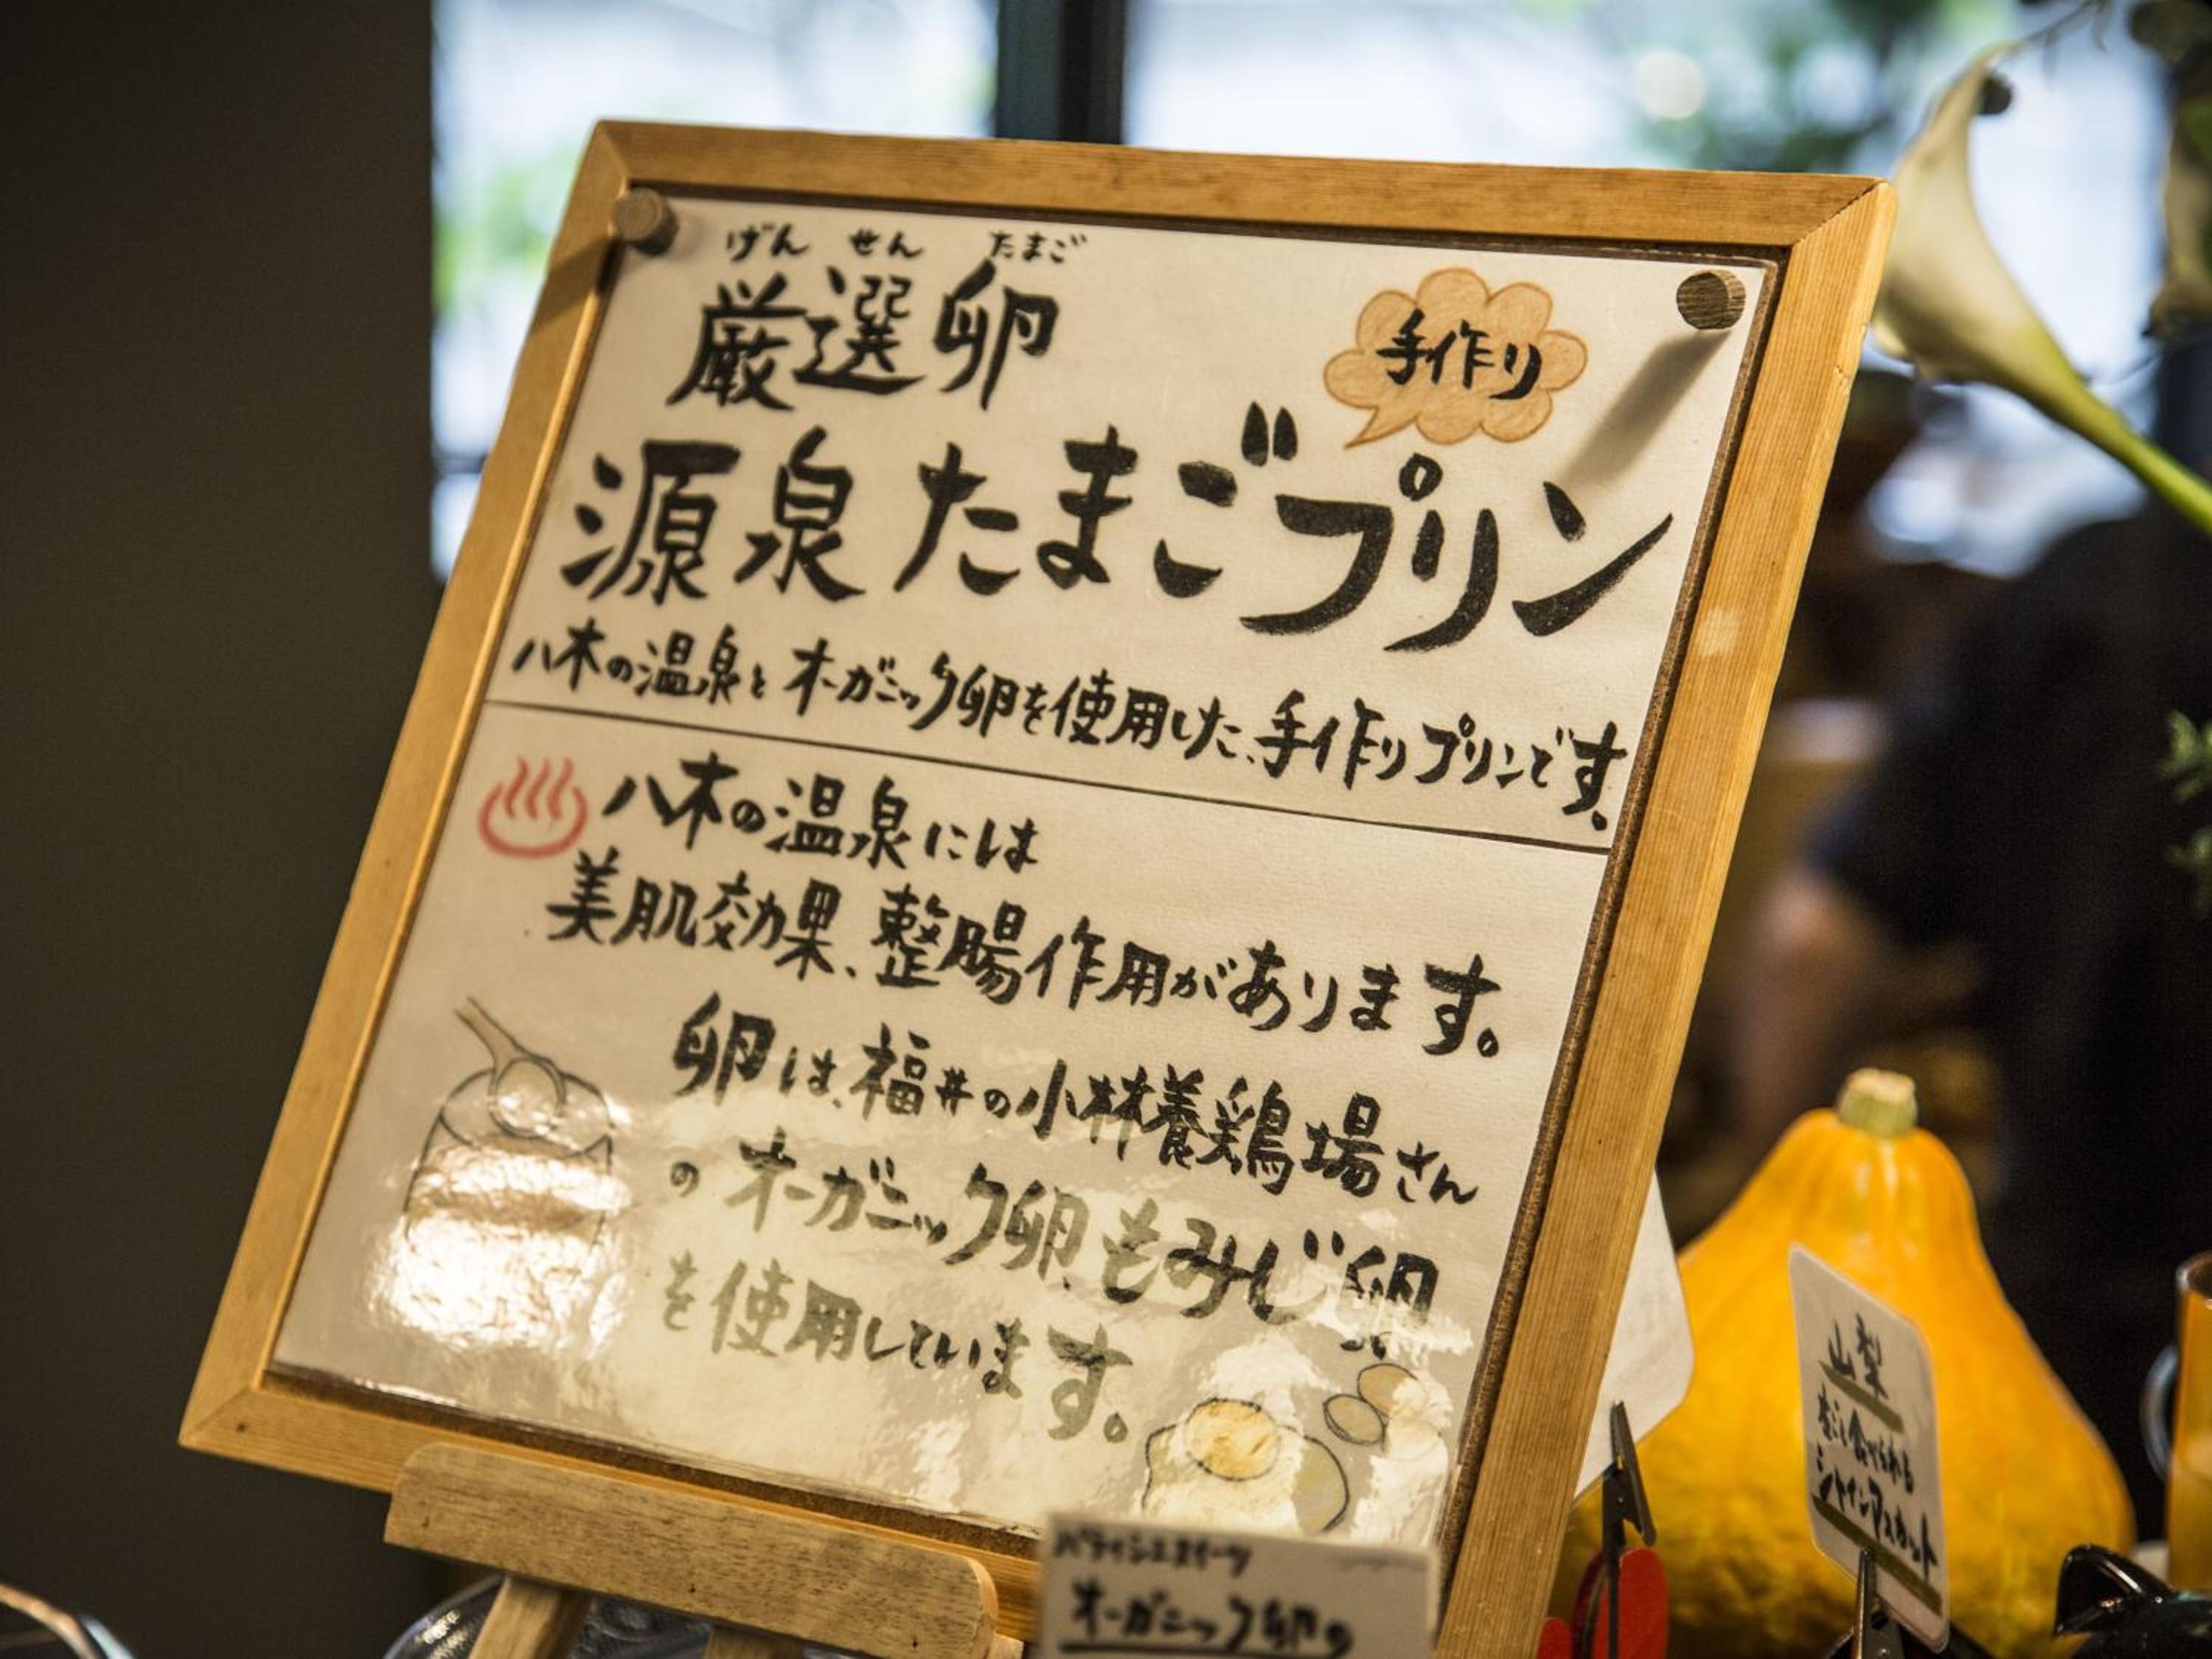 げん せん たまご
厳選卵
手作り
源泉たまごプリン
八木の温泉とオーガニック卵を使用した、手作りプリンです。
八木の温泉には
美肌効果、整腸作用があります。
卵は、福井の小林養鶏場さん
のオーガニック卵、もみじ卵
を使用しています。
パティシエスイーツ
オーガニック卵の
山梨
皮ごと食べられる
シャインマスカット